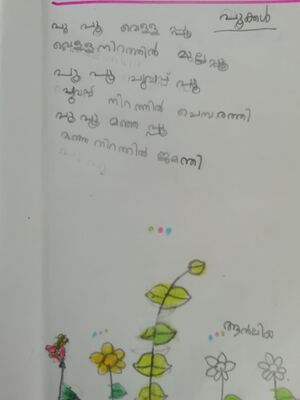 പൂക്കൾ
പൂ പൂ വെള്ള പൂ
വെള്ളനിറത്തിൽ മുല്ലപ്പൂ
പൂ പൂ ചുവപ്പ് പൂ
ചുവപ്പ് നിറത്തിൽ ചെമ്പരത്തി
പൂ പൂ മഞ്ഞ പ്പൂ
മഞ്ഞ നിറത്തിൽ ജമന്തി
ആൻലിയ